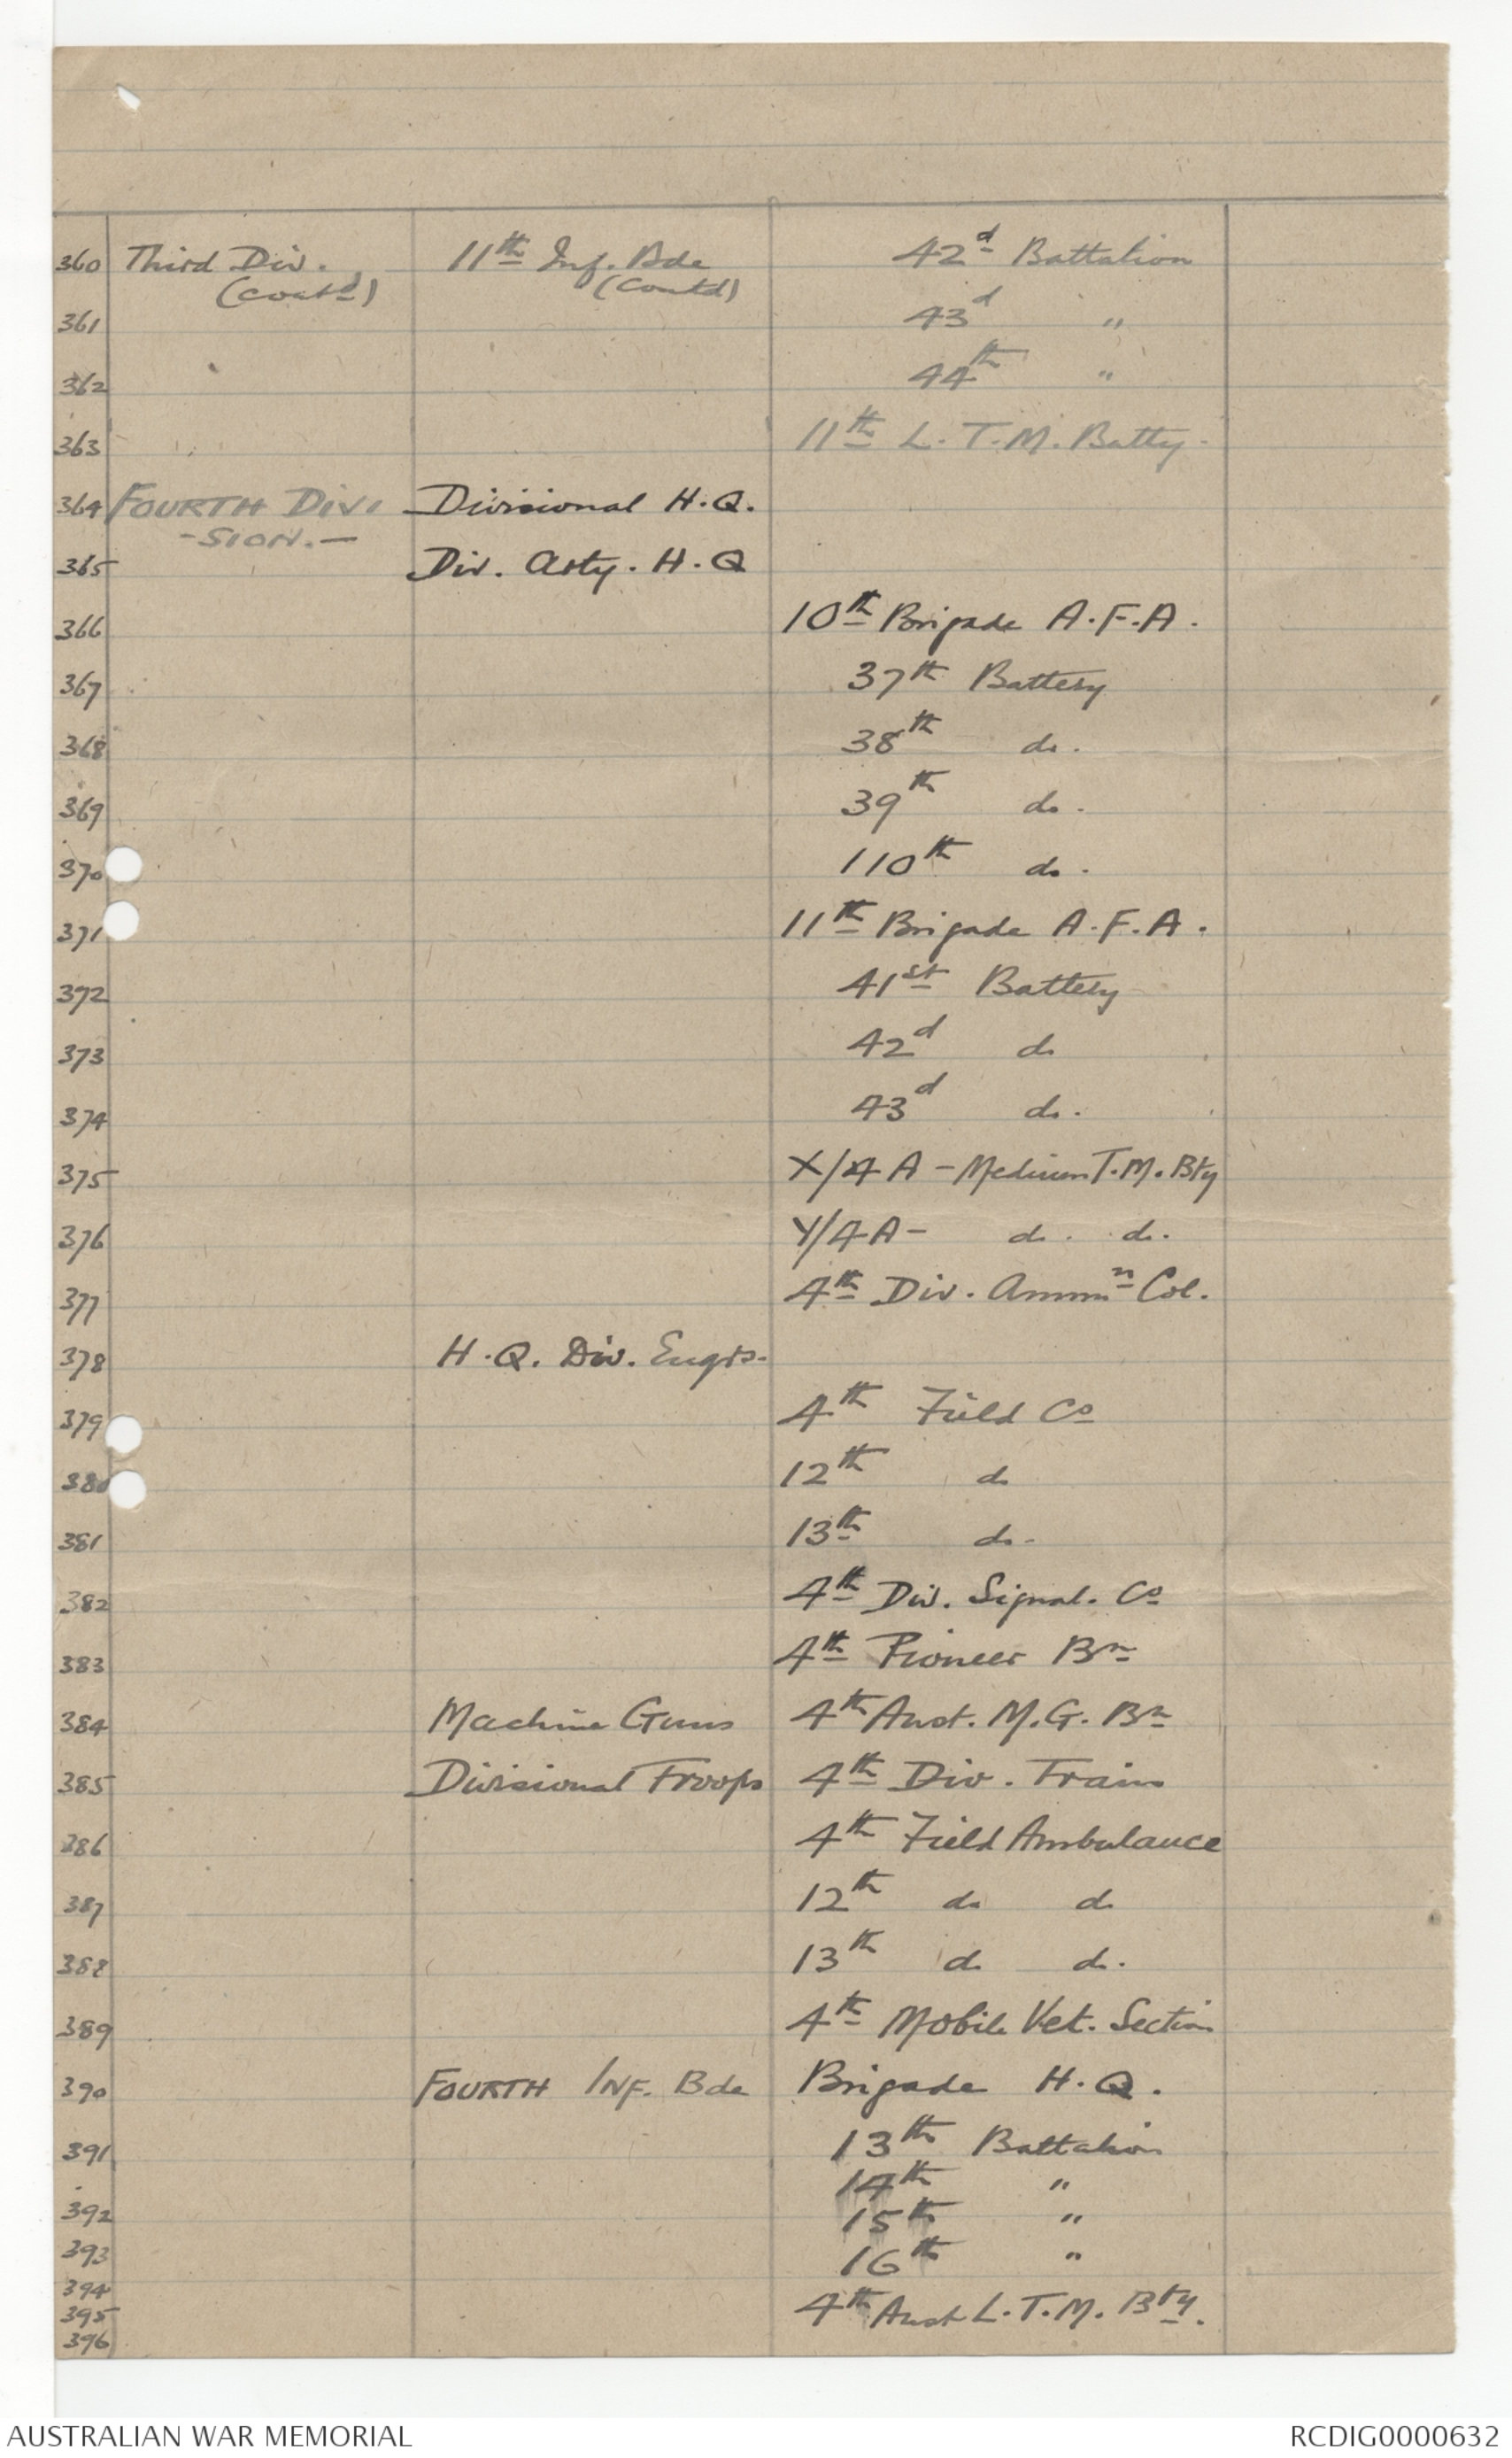 360 Third Div. 11th Inf. Bde 42d Battalion
(Contd) (Contd)
361 43d "
362 44th "
363 11th L.T.M. Batty.
364 FOURTH DIVI Divisional H.Q.
-SION.-
365 Div. Arty. H.Q
366 10th Brigade A.F.A.
367 37th Battery
368 38th do.
369 39th do.
370 110th do.
371 11th Brigade A.F.A.
372 41st Battery
373 42d do
374 43d do.
375 X/4A - Medium T.M. Bty
376 Y/4A - do. do.
377 4th Div. Ammn Col.
378 H.Q. Div. Engrs.
379 4th Field Co
380 12th do
381 13th do.
382 4th Div. Signal. Co
383 4th Pioneer Bn
384 Machine Guns 4th Aust. M.G. Bn
385 Divisional Troops 4th Div. Train
386 4th Field Ambulance
387 12th do do
388 13th do do.
389 4th Mobile Vet. Section
390 FOURTH INF. Bde Brigade H.Q.
391 13th Battalion
14th "
392 15th "
393 16th "
394
395 4th Aust L.T.M. Bty.
396
AUSTRALIAN WAR MEMORIAL RCDIG0000632